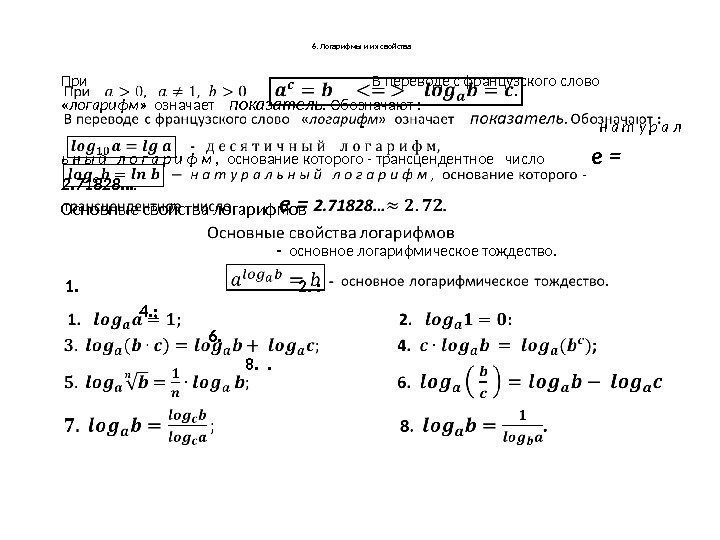 6. Логарифмы и их свойства
При В переводе с французского слово
При a > 0, a ≠ 1, b > 0 a^c = b <=> log_a b = c.
«логарифм» означает показатель. Обозначают :
В переводе с французского слово «логарифм» означает показатель. Обозначают :
- натурал
log_10 a = lg a - десятичный логарифм,
ьный логарифм, основание которого - трансцендентное число e =
log_e b = ln b – натуральный логарифм, основание которого -
2.71828….
трансцендентное число e = 2.71828…≈ 2.72.
Основные свойства логарифмов
Основные свойства логарифмов
- основное логарифмическое тождество.
a^(log_a b) = b - основное логарифмическое тождество.
1. 2. :
4.;
1. log_a a = 1; 2. log_a 1 = 0:
6.
3. log_a(b · c) = log_a b + log_a c; 4. c · log_a b = log_a(b^c);
8. .
5. log_a ⁿ√b = 1/n · log_a b; 6. log_a (b/c) = log_a b − log_a c
7. log_a b = log_c b / log_c a; 8. log_a b = 1 / log_b a.